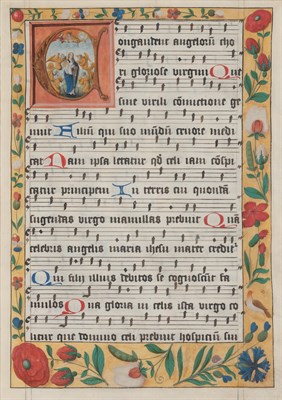 Congaudent angelorũ cho
ri gloriose virgini Que
sine virili cõmictione ge
nuit Filiũ qui suo mũdũ cruore medi
cat Nam ipsa letatur qđ celi iam cõspi
catur principem In terris cui quondã
sugendas virgo mamillas prebuit Quã
celebris angelis maria ihesu mater credit͛
Qui filii illius debitos se cognoscũt fa
mulos Qua gloria in celis ista virgo co
litur que domino celi prebuit hospiciũ sui